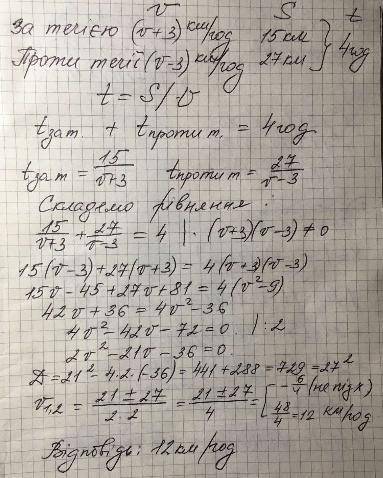 v S t
За течією (v+3) км/год 15 км
Проти течії (v-3) км/год 27 км } 4 год
t = S/v
t за т + t проти т. = 4 год
t за т = 15/(v+3) t проти т = 27/(v-3)
Складемо рівняння:
15/(v+3) + 27/(v-3) = 4 | · (v+3)(v-3) ≠ 0
15(v-3)+27(v+3) = 4(v+3)(v-3)
15v - 45 + 27v + 81 = 4(v²-9)
42v + 36 = 4v² - 36
4v² - 42v - 72 = 0. | : 2
2v² - 21v - 36 = 0.
D = 21² - 4·2·(-36) = 441 + 288 = 729 = 27²
v1,2 = (21 ± 27)/(2·2) = (21 ± 27)/4 = [ -6/4 (не підх)
48/4 = 12 км/год
Відповідь: 12 км/год